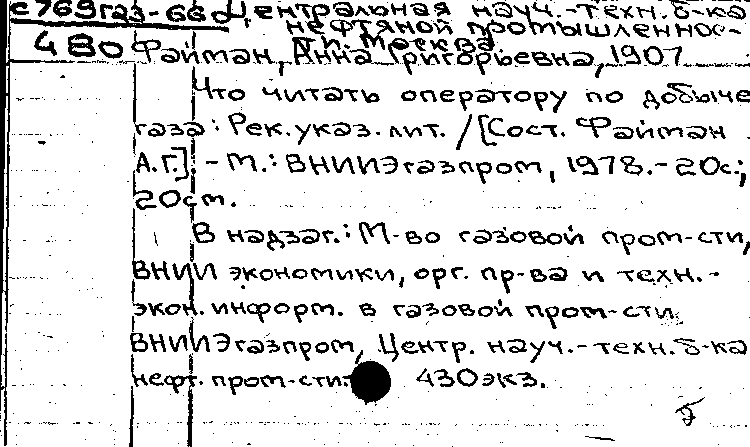 с769газ-66д Центральная науч.-техн. б-ка
нефтяной промышленнос-
ти. Москва
480 Файман, Анна Григорьевна, 1907
Что читать оператору по добыче
газа: Рек. указ. лит. /[Сост. Файман
А.Г.]. - М.: ВНИИЭгазпром, 1978. - 20с.;
20см.
В надзаг.: М-во газовой пром-сти,
ВНИИ экономики, орг. пр-ва и техн.-
экон. информ. в газовой пром-сти
ВНИИЭгазпром, Центр. науч.-техн. б-ка
нефт. пром-сти. 430экз.